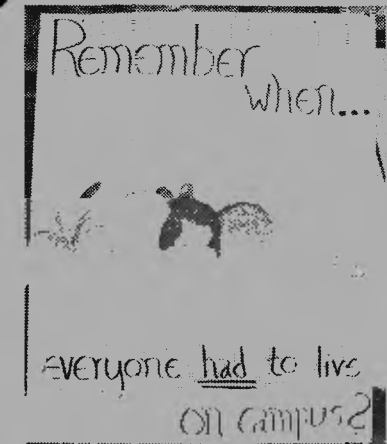 Remember
when...
everyone had to live
on campus?